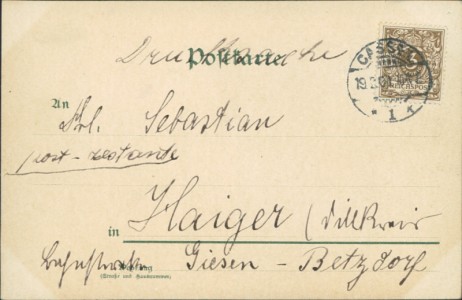 Drucksache
Postkarte
CASSEL
3
REICHSPOST
* 1 *
An
Frl. Sebastian
post-restante
in Haiger (Dillkreis
Wohnung
(Straße und Hausnummer)
Giesen - Betzdorf